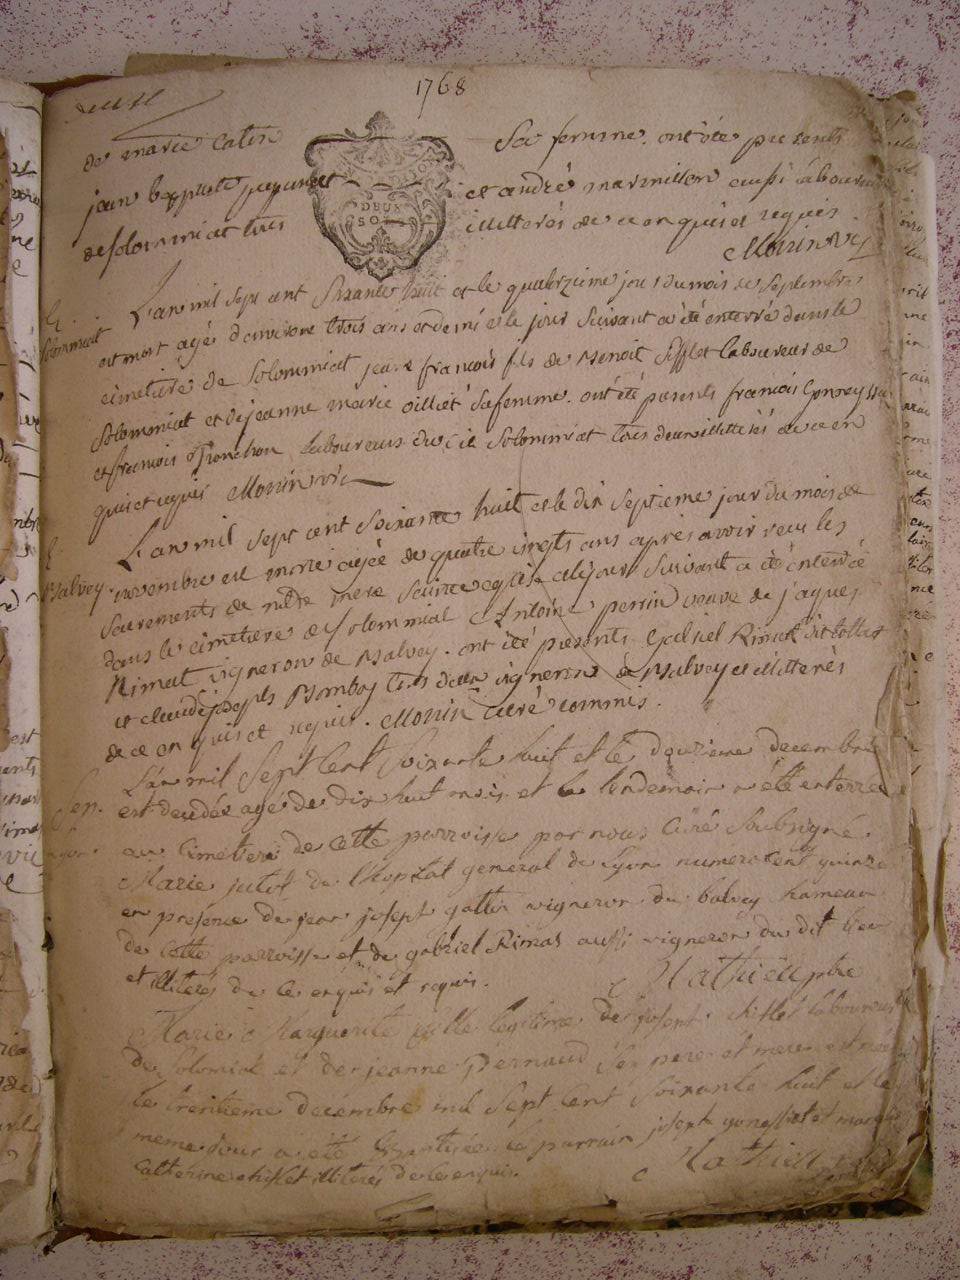 1768
DEUX
SOLS
de marie Catin sa femme. ont été presents
jean baptiste et andré marmillon aussi laboureur
de solommiat tous illitterés de ce enquis et requis
Morin vic
L'an mil sept cent soixante huit et le quatorzieme jour du mois de septembre
Solommiat
est mort agé d'environ trois ans et demi et le jour suivant a été enterré dans le
cimetiere de Solommiat jean françois fils de Benoit Sifflet laboureur de
Solommiat et de jeanne marie oilliet sa femme. ont été presents francois
et francois Tronchon laboureurs du dit Solommiat tous deux illitterés de ce en
quis et requis Morin vic
L'an mil sept cent soixante huit et le dix septieme jour du mois de
Balvey
novembre est morte agée de quatre vingts ans après avoir reçu les
sacrements de notre mere sainte eglise et le jour suivant a été enterré
dans le cimetiere de solommiat Antoine perrin veuve de jaques
Rimat vigneron de Balvey. ont été presents Gabriel Rimat dit
et claude joseph Bomboy tous deux vignerons de Balvey et illitterés
de ce enquis et requis. Morin curé commis.
L'an mil sept cent soixante huit et le douzieme decembre
est decedée agé de dix huit mois et le lendemain a été enterrée
au cimetiere de cette parroisse par nous curé soubsigné
Marie jutot de l'hopital general de lyon numero cent quinze
en presence de jean joseph gottin vigneron du balvey hameau
de cette parroisse et de gabriel Rimas aussi vigneron du dit lieu
et illiterés de ce enquis et requis.
Mathieu ptre
Marie Marguerite fille legitime de joseph chiflet laboureur
de Solomiat et de jeanne Pernaud ses pere et mere est née
le trentieme decembre mil sept cent soixante huit et le
meme jour a été Baptisée le parrain joseph et marraine
Catherine chiflet illiterés de ce enquis.
Mathieu